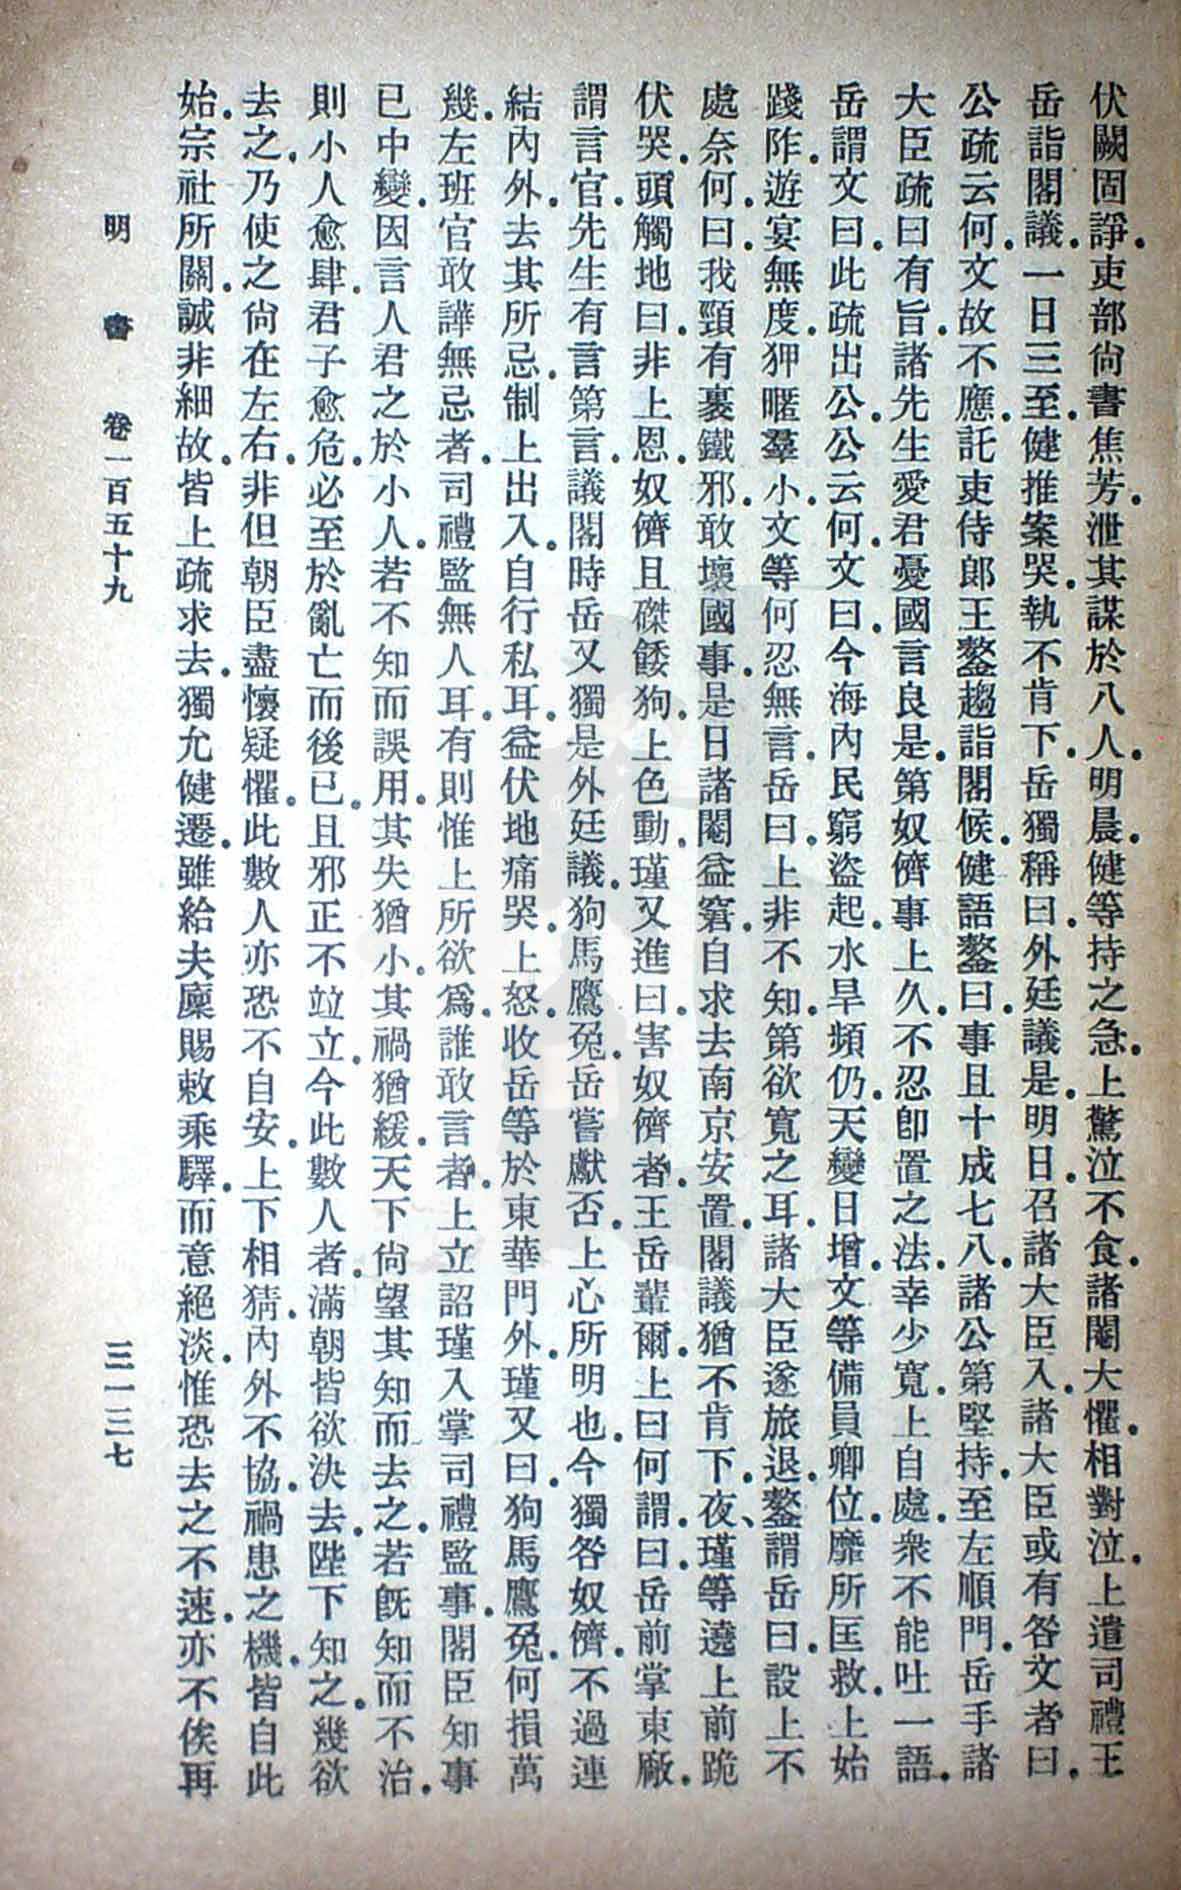 伏闕固諍.吏部尚書焦芳.泄其謀於八人.明晨.健等持之急.上驚泣不食.諸閹大懼.相對泣.上遣司禮王
岳詣閣議.一日三至.健推案哭.執不肯下.岳獨稱曰.外廷議是.明日.召諸大臣入.諸大臣或有咎文者曰.
公疏云何.文故不應.託吏侍郎王鏊趨詣閣候.健語鏊曰.事且十成七八.諸公第堅持.至左順門.岳手諸
大臣疏曰有旨.諸先生愛君憂國言良是.第奴儕事上久.不忍卽置之法.幸少寬.上自處.衆不能吐一語.
岳謂文曰.此疏出公.公云何.文曰.今海內民窮盜起.水旱頻仍.天變日增.文等備員卿位.靡所匡救.上始
踐阼.遊宴無度.狎暱羣小.文等何忍無言.岳曰.上非不知.第欲寬之耳.諸大臣遂旅退.鏊謂岳曰.設上不
處奈何.曰.我頸有裹鐵邪.敢壞國事.是日諸閹益窘.自求去南京安置.閣議猶不肯下.夜、瑾等遶上前跪
伏哭.頭觸地曰.非上恩.奴儕且磔餧狗.上色動.瑾又進曰.害奴儕者.王岳輩爾.上曰何謂.曰.岳前掌東廠.
謂言官.先生有言第言.議閣時岳又獨是外廷議.狗馬鷹兔.岳嘗獻否.上心所明也.今獨咎奴儕.不過連
結內外.去其所忌.制上出入.自行私耳.益伏地痛哭.上怒.收岳等於東華門外.瑾又曰.狗馬鷹兔.何損萬
幾.左班官敢譁無忌者.司禮監無人耳.有則惟上所欲爲.誰敢言者.上立詔瑾入掌司禮監事.閣臣知事
已中變.因言人君之於小人.若不知而誤用.其失猶小.其禍猶緩.天下尚望其知而去之.若旣知而不治.
則小人愈肆.君子愈危.必至於亂亡而後已.且邪正不竝立.今此數人者.滿朝皆欲決去.陛下知之.幾欲
去之.乃使之尚在左右.非但朝臣盡懷疑懼.此數人亦恐不自安.上下相猜.內外不協.禍患之機.皆自此
始.宗社所關.誠非細故.皆上疏求去.獨允健遷.雖給夫廩賜敕乘驛.而意絕淡.惟恐去之不速.亦不俟再
明書 卷一百五十九 三一三七